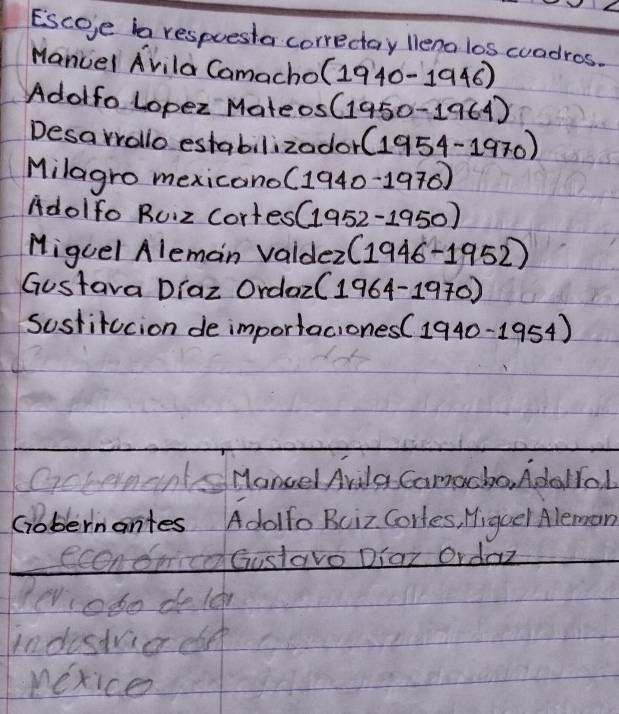 Escoje la respuesta correcta y llena los cuadros.
Manuel Ávila Camacho (1940-1946)
Adolfo Lopez Mateos (1950-1964)
Desarrollo estabilizador (1954-1970)
Milagro mexicano (1940-1970)
Adolfo Ruiz Cortes (1952-1950)
Miguel Alemán Valdez (1946-1952)
Gustava Díaz Ordaz (1964-1970)
Sustitucion de importaciones (1940-1954)
Gobernantes Manuel Avila Camacho, Adolfo L
Gobernantes Adolfo Ruiz Cortes, Miguel Aleman
económico Gustavo Díaz Ordaz
Periodo de la
industria de
México